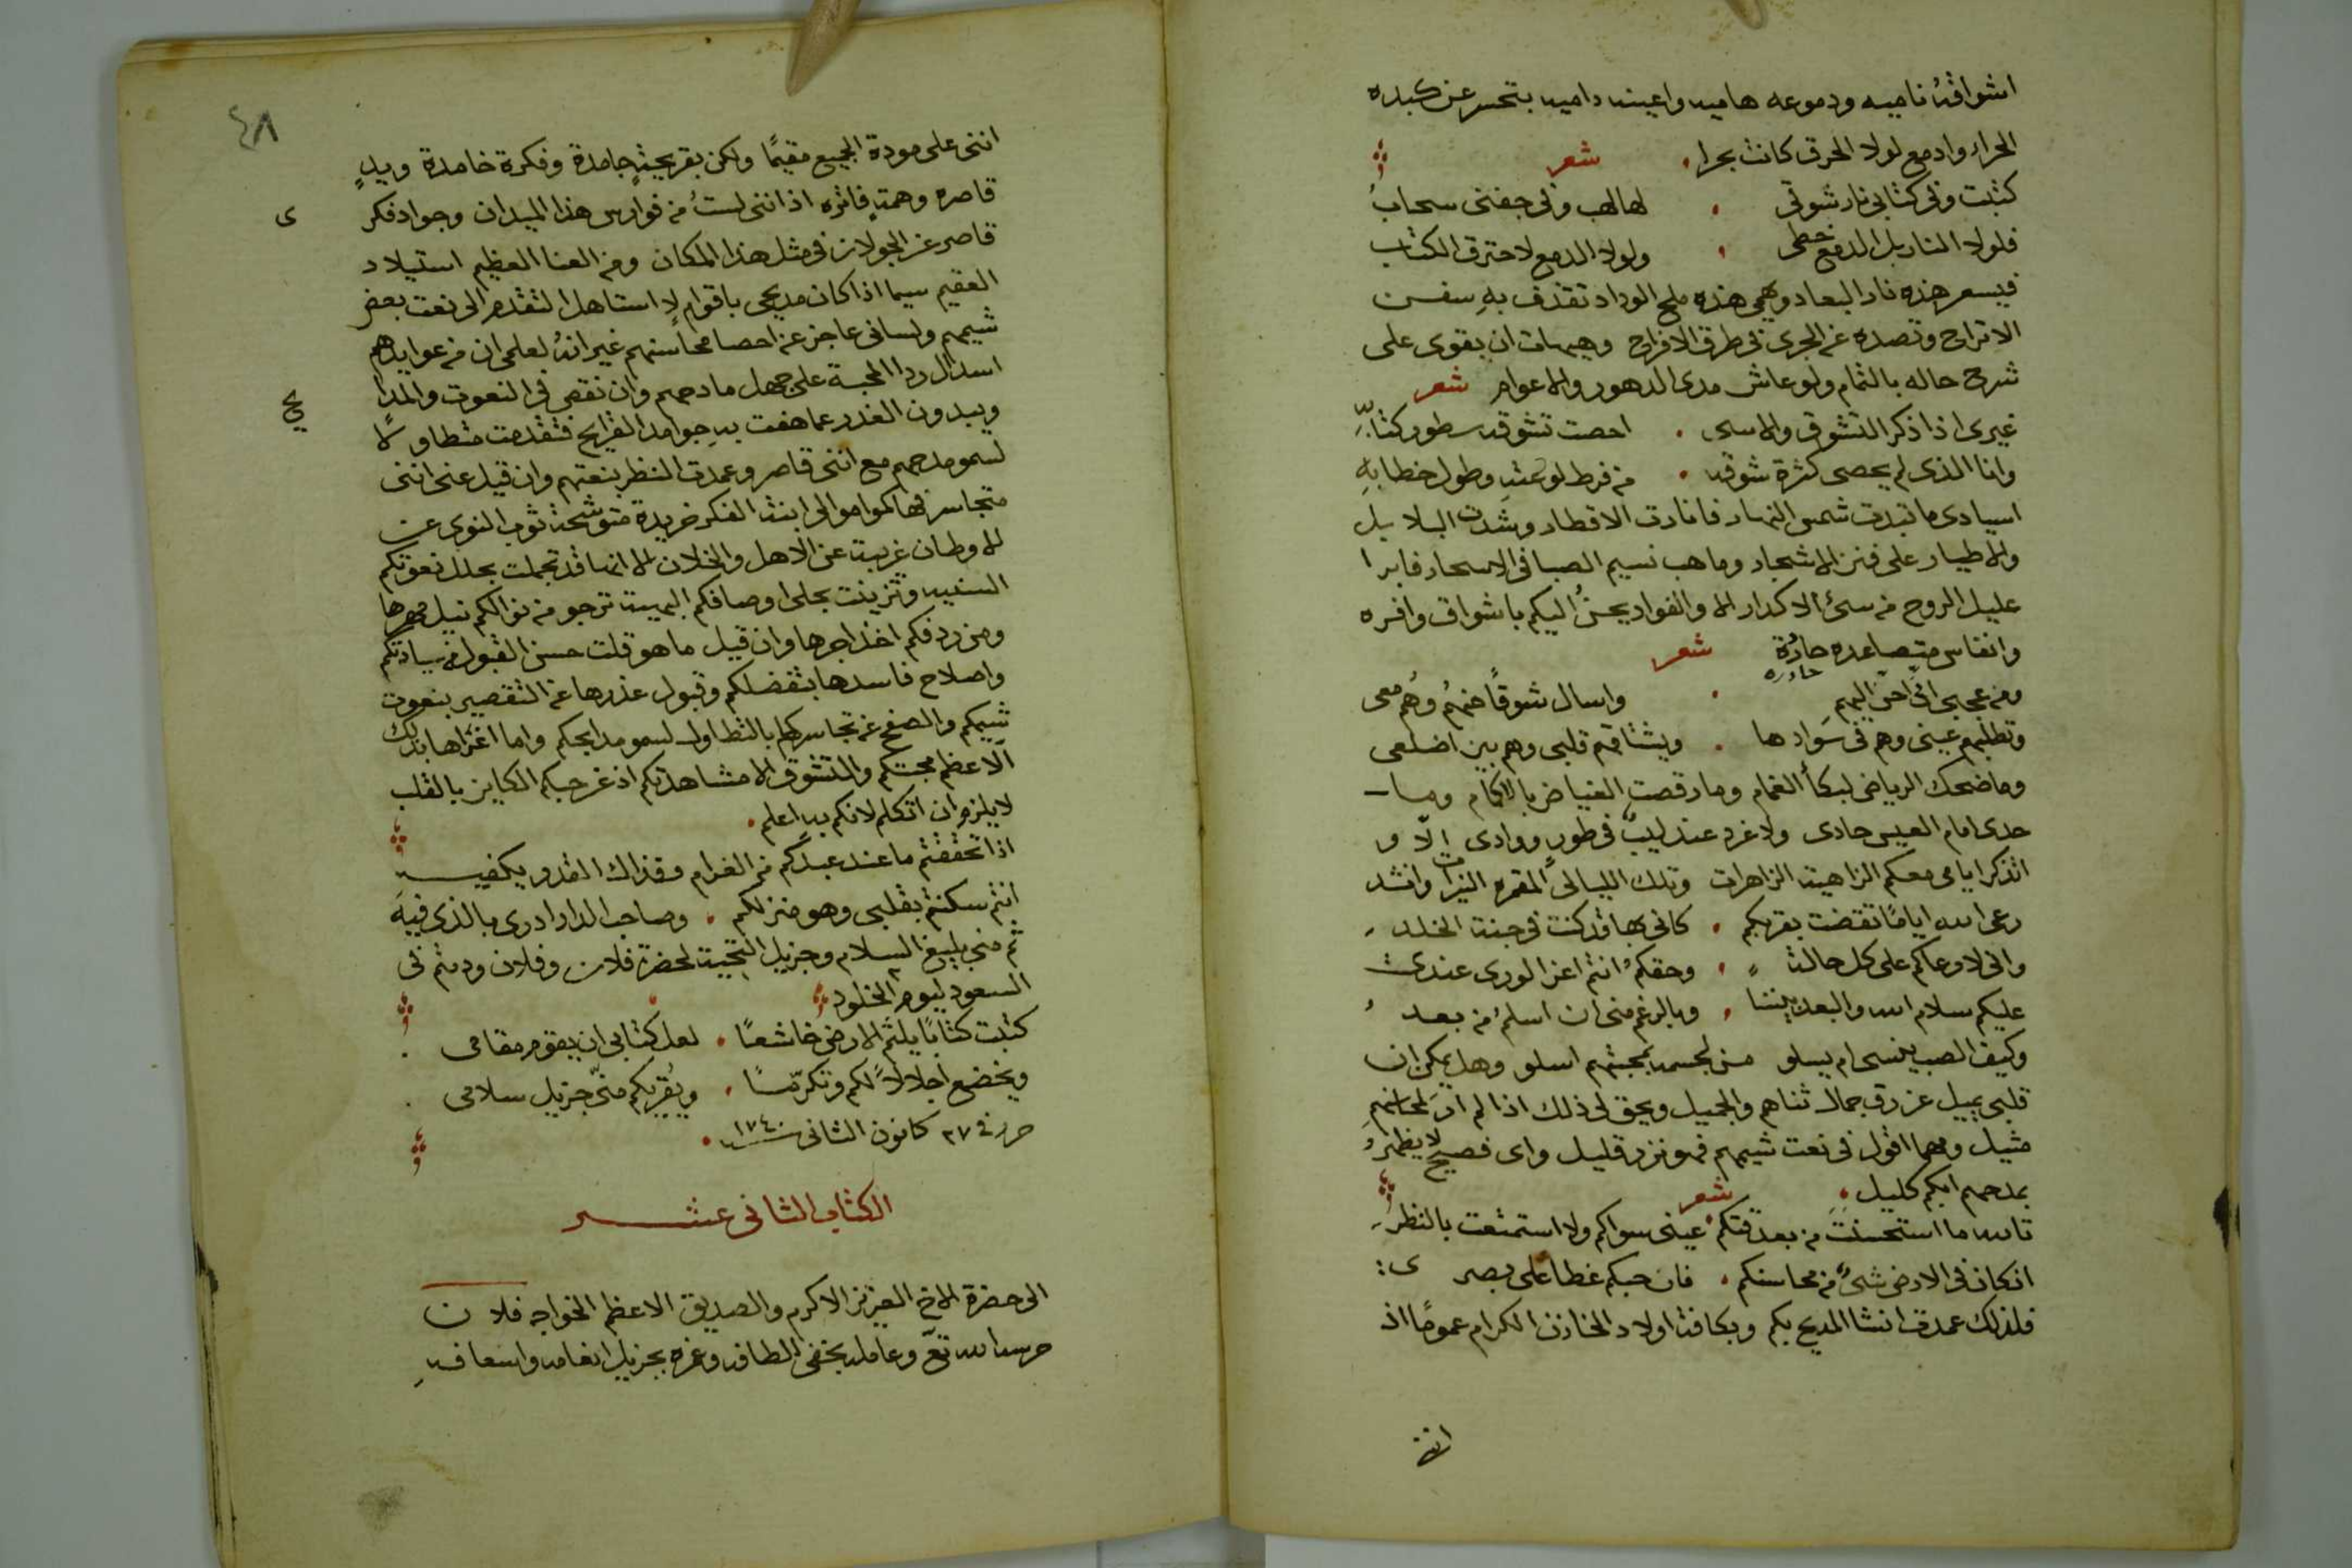 اشواقهُ ناميه ودموعه هاميه واعينه داميه بتحسر عن كبده
الحراء وادمع لولا الحرق كانت بحرا . شعر
كتبت وفي كتابي نار شوقي . لها لهب وفي جفني سحابُ
فلولا النار بل الدمع خطي . ولولا الدمع لاحترق الكتاب
فيسعر هذه نار البعاد وهمي هذه ملح الوداد تقذف بهِ سفن
الاتراح وتصده عن الجرى في طرق الافراح وهيهات ان يقوى على
شرح حاله بالتمام ولو عاش مدى الدهور والاعوام شعر
غيرى اذا ذكر التشوق والاسى . احصت تشوقه سطور كتابهِ
وانا الذى لم يحصى كثرة شوقه . من فرط لوعتهِ وطول خطابهِ
اسيادى ما تبدت شمس النهار فانارت الاقطار وشدت البلابل
والاطيار على فنن الاشجار وما هب نسيم الصبا فى الاسحار فابرا
عليل الروح من سىء الاكدار الا والفواد يحنُ اليكم باشواق وافره
وانفاس متصاعده حادُة حادره شعر
ومن عجبى انى احن اليهم . واسال شوقًا عنهُم وهُم معى
وتطلبهم عينى وهم فى سَوادها . ويشتاقهم قلبى وهم بين اضلعى
وما ضحك الرياض لبكأ الغمام وما رقصت الغياض بالاكمام وما
حدى امام العيس حادى ولا غرد عندليبٌ فى طور ووادى الّا و
اتذكر ايامى معكم الزاهية الزاهرات وتلك الليالى المقمره النيرات وانشد
رعى الله ايامًا تقضت بقربكم . كانى بها قد كنت فى جنة الخلد
وانى لارعاكم على كل حالة . وحقكمُ انتم اعز الورى عندى
عليكم سلام الله والبعد بيننا . وبالرغم منى ان اسلمُ من بعد
وكيف الصب ينسى ام يسلو من لجسمه بمحبتهم اسلو وهل يمكن ان
قلبى يميل عن رق جمال ثناهم والجميل ويحق لى ذلك اذا لم ارَ لمحاسنهم
مثيل ومهما اقول فى نعت شيمهم فهو نزر قليل واى فصيح لا يظهرُ
بمدحهم ابكم كليل . شعر
تالله ما استحسنت من بعد فرقتكم عينى سواكم ولا استمتعت بالنظر
ان كان فى الارض شىءٌ من محاسنكم . فان حبكم غطا على بصرى
فلذلك عمدت انشا المديح بكم وبكافة اولاد الخازن الكرام عمومًا اذ
اننى
٤٨
اننى على مودة الجميع مقيمًا ولكن بقريحةٍ جامدة وفكرة خامدة ويدٍ
قاصره وهمةٍ فاتره اذ اننى لستُ من فوارس هذا الميدان وجواد فكرى
قاصر عن الجولان فى مثل هذا المكان ومن العنا العظيم استيلاد
العقيم سيما اذا كان مديحى باقوام لا استاهل التقدم الى نعت بعض
شيمهم ولسانى عاجز عن احصا محاسنهم غير انهُ لعلمى ان من عوايدهم
اسدال ردا المحبة على جهل مادحهم وان نقص فى النعوت والمدايح
ويبدون العذر عما هفت بهِ جوامد القرايح فتقدمت متطاولًا
لسمو مدحهم مع اننى قاصر وعمدت النظر بنعتهم وان قيل عنى اننى
متجاسر فهاكموا موالى ابنة الفكر خريدة متوشحة ثوب النوى عن
الاوطان غريبة عن الاهل والخلان الا انها قد تجملت بحلل نعوتكم
السنيه وتزينت بحلى اوصافكم البهية ترجو من نوالكم نيل مهرها
ومن رفدكم اخذ اجرها وان قيل ما هو قلت حسن القبول من سيادتكم
واصلاح فاسدها بتفضلكم وقبول عذرها عن التقصير بنعوت
شيمكم والصفح عن تجاسرها بالتطاول لسمو مدايحكم وما اغراها بذلك
الّا عظم محبتكم والتشوق الا مشاهدتكم اذ عن حبكم الكاين بالقلب
لا يلزم ان اتكلم لانكم بهِ اعلم .
اذا تحققتم ما عند عبدكم من الغرام فذاك القدر يكفيه
انتم سكنتم بقلبى وهو منزلكم . وصاحب الدار ادرى بالذى فيهَ
ثم منى بليغ السلام وجزيل التحية لحضرة فلان وفلان ودمتم فى
السعود ليوم الخلود
كتبت كتابًا يلثم الارض خاشعًا . لعل كتابى ان يقوم مقامى
ويخضع اجلالًا لكم وتكرّمًا . ويُقريكم منّى جزيل سلامى
حرر فى ٢٧ كانون الثانى سنة ١٧٤٠ .
الكتاب الثانى عشر
الى حضرة الاخ العزيز الاكرم والصديق الاعظم الخواجه فلان
حرسه الله تعَ وعامله بخفى الطافه وغمره بجزيل انعامه واسعافهِ